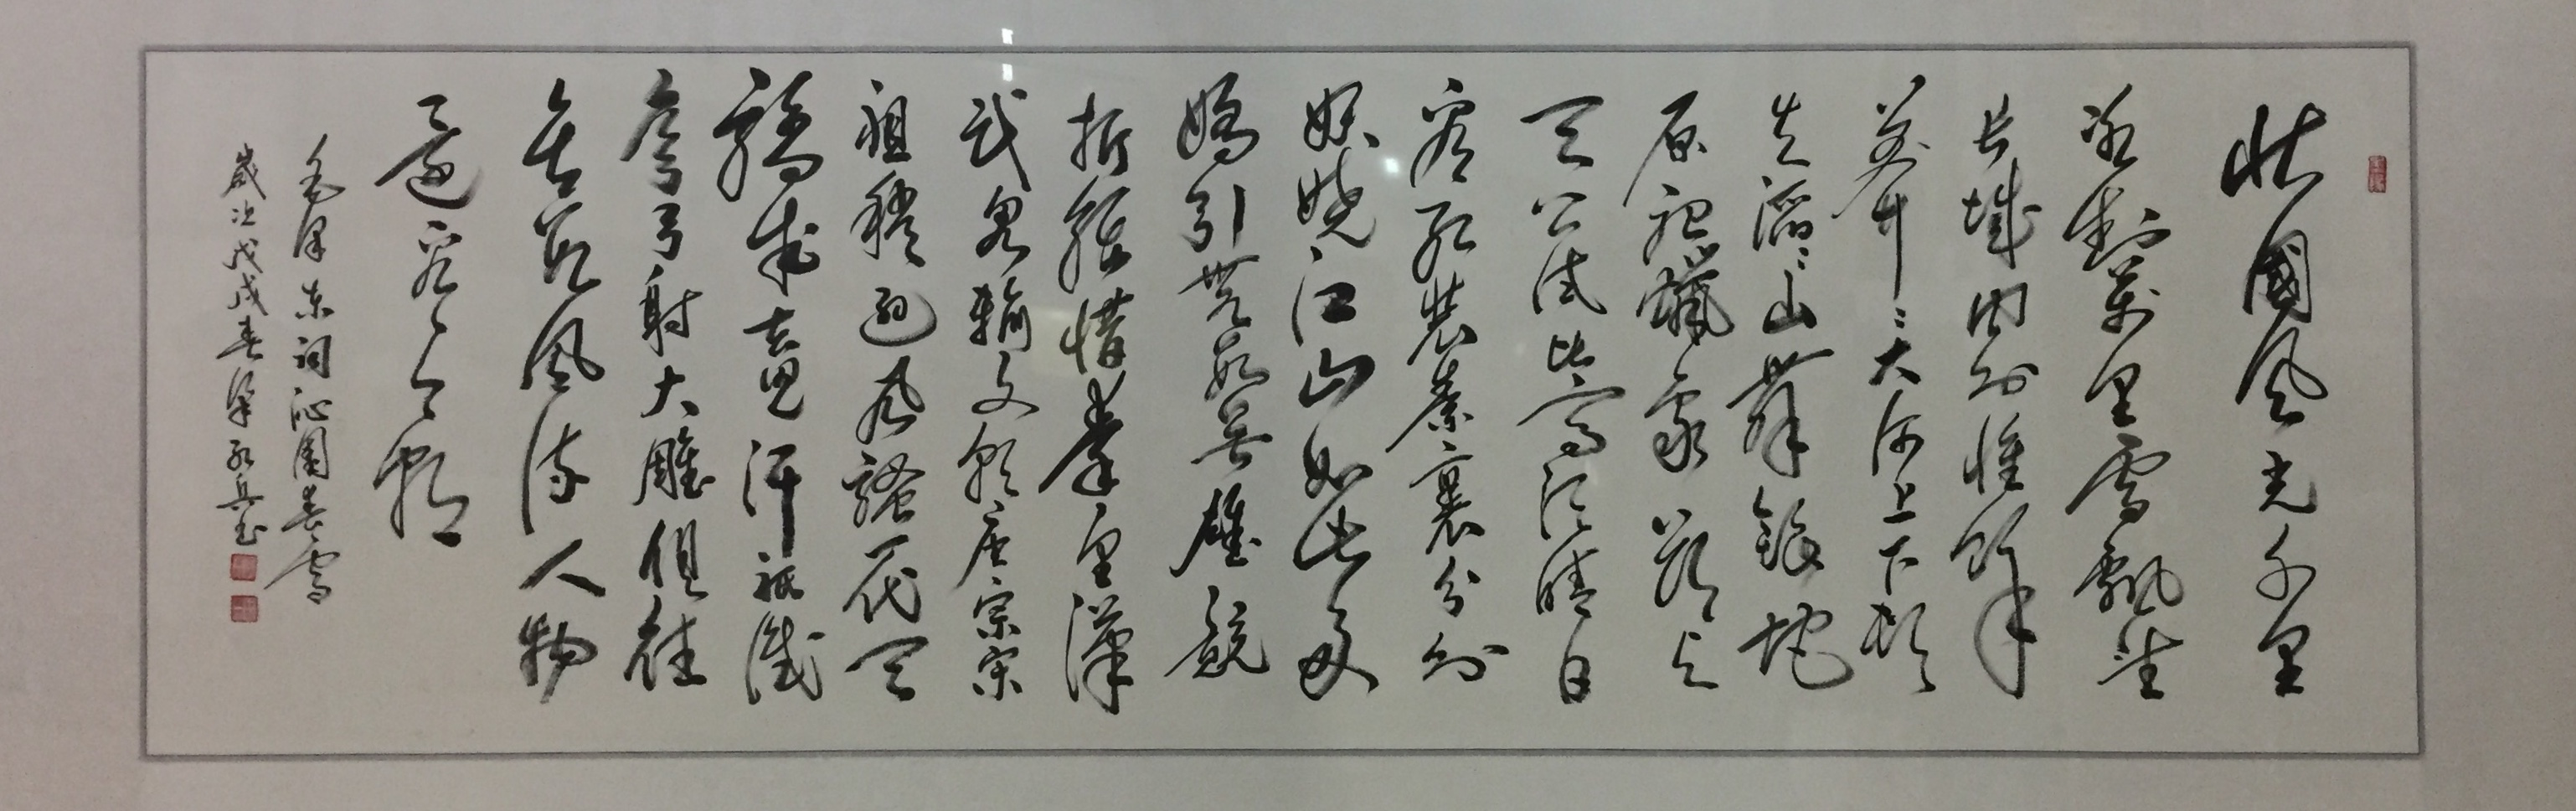 北國風光千里
冰封萬里雪飄望
長城內外惟餘
莽莽大河上下頓
失滔滔山舞銀蛇
原馳蠟象欲與
天公試比高須晴日
看紅裝素裹分外
妖嬈江山如此多
嬌引無數英雄競
折腰惜秦皇漢
武略輸文采唐宗宋
祖稍遜風騷一代天
驕成吉思汗祇識
彎弓射大雕俱往
矣數風流人物
還看今朝
毛澤東詞沁園春雪
歲次戊戌春梁